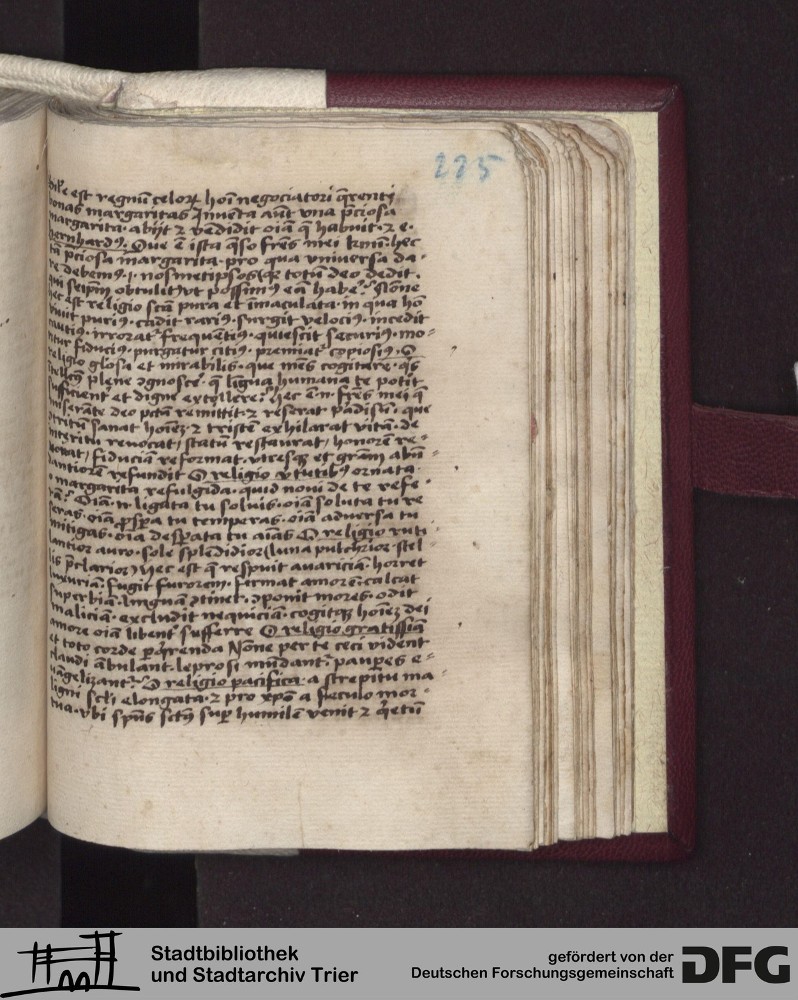 225
est regnū celoꝝ hoī negociatori q̄renti
bonas margaritas Inventa aūt vna p̄ciosa
margarita· abijt ⁊ vēdidit oīa q̄ habuit· ⁊ e·
Bernhardꝰ. Que ē ista q̄so frēs mei kmī· hec
tā p̄ciosa margarita· pro qua vniversa da-
re debemꝰ· ·i· nosmetipsos· qꝛ totū deo dedit·
qui seip̄m obtulit vt possimꝰ eā habē? Nōne
hec est religio scā pura et īmaculata· in qua hō
vivit puriꝰ· cadit rariꝰ· surgit velociꝰ· incedit
cautiꝰ· irrorat᷑ frequētiꝰ· quiescit securiꝰ· mo-
ritur fiduciꝰ· purgatur citiꝰ· premiat᷑ copiosiꝰ· O
religio gl̄osa et mirabilis· que mēs cogitare· q̄s
plene ꝯgnosce᷑· q̄ līgua humana te potit
sufficient᷑ et digne extollere? Hec ē· n̄· frēs mei q̄
miserāte deo pctā remittit· ⁊ reserat padisū· que
ꝯtritū sanat hoīeꝫ· ⁊ tristē exhilarat· vitā· de
interitu revocat/ statū restaurat/ honorē re-
novat/ fiduciā reformat· viresqꝫ et grām abū-
dantiorē refundit O religio v̄tutibꝰ ornata·
o margarita refulgida· quid novi de te refe-
rā? Oīa· n̄· ligata tu solvis· oīa soluta tu re
seras· oīa ꝓspa tu temperas· oīa adversa tu
mitigas· oīa despata tu aīas O religio ruti-
lantior auro· sole splēdidior/ luna pulchrior stel-
lis p̄clarior/ Hec est q̄ respuit avariciā· horret
luxuriā· fugit furorem· fermat amorē· calcat
superbiā· linguam ꝯtinet· ꝯponit mores· odit
maliciā· excludit nequiciā· cogitqꝫ hoīeꝫ dei
amore oīa libent᷑ sufferre O religio gratissīa
et toto corde pq̄renda Nōne per te ceci vident
claudi ābulant· leprosi mūdant᷑· paupes e-
vāgelizant᷑? O religio pacifica· a strepitu ma-
ligni scl̄i elongata· ⁊ pro xpō a seculo mor-
tua· vbi sp̄us sctꝰ sup humilē venit ⁊ q̄etū
Stadtbibliothek
und Stadtarchiv Trier
gefördert von der
Deutschen Forschungsgemeinschaft
DFG